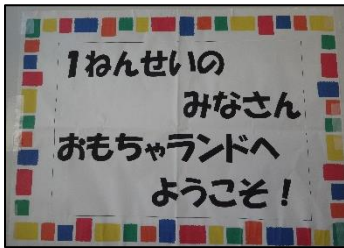 1ねんせいの
みなさん
おもちゃランドへ
ようこそ！